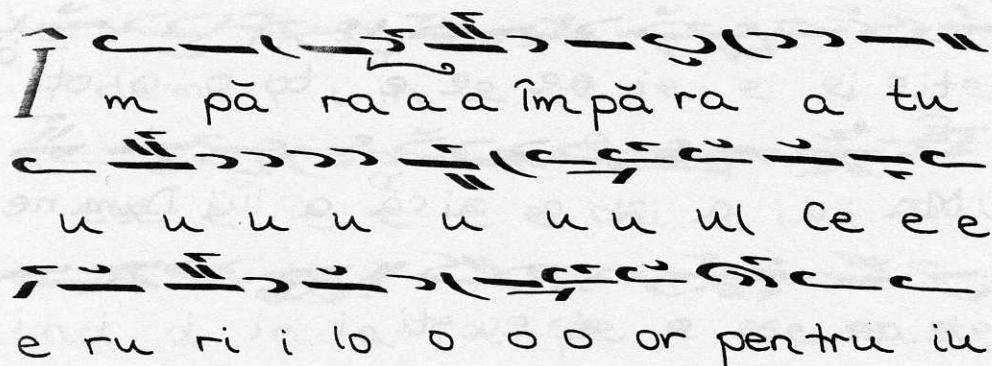 Îm pă ra a a îm pă ra a tu
u u u u u u u ul Ce e e
e ru ri i lo o o o or pentru iu